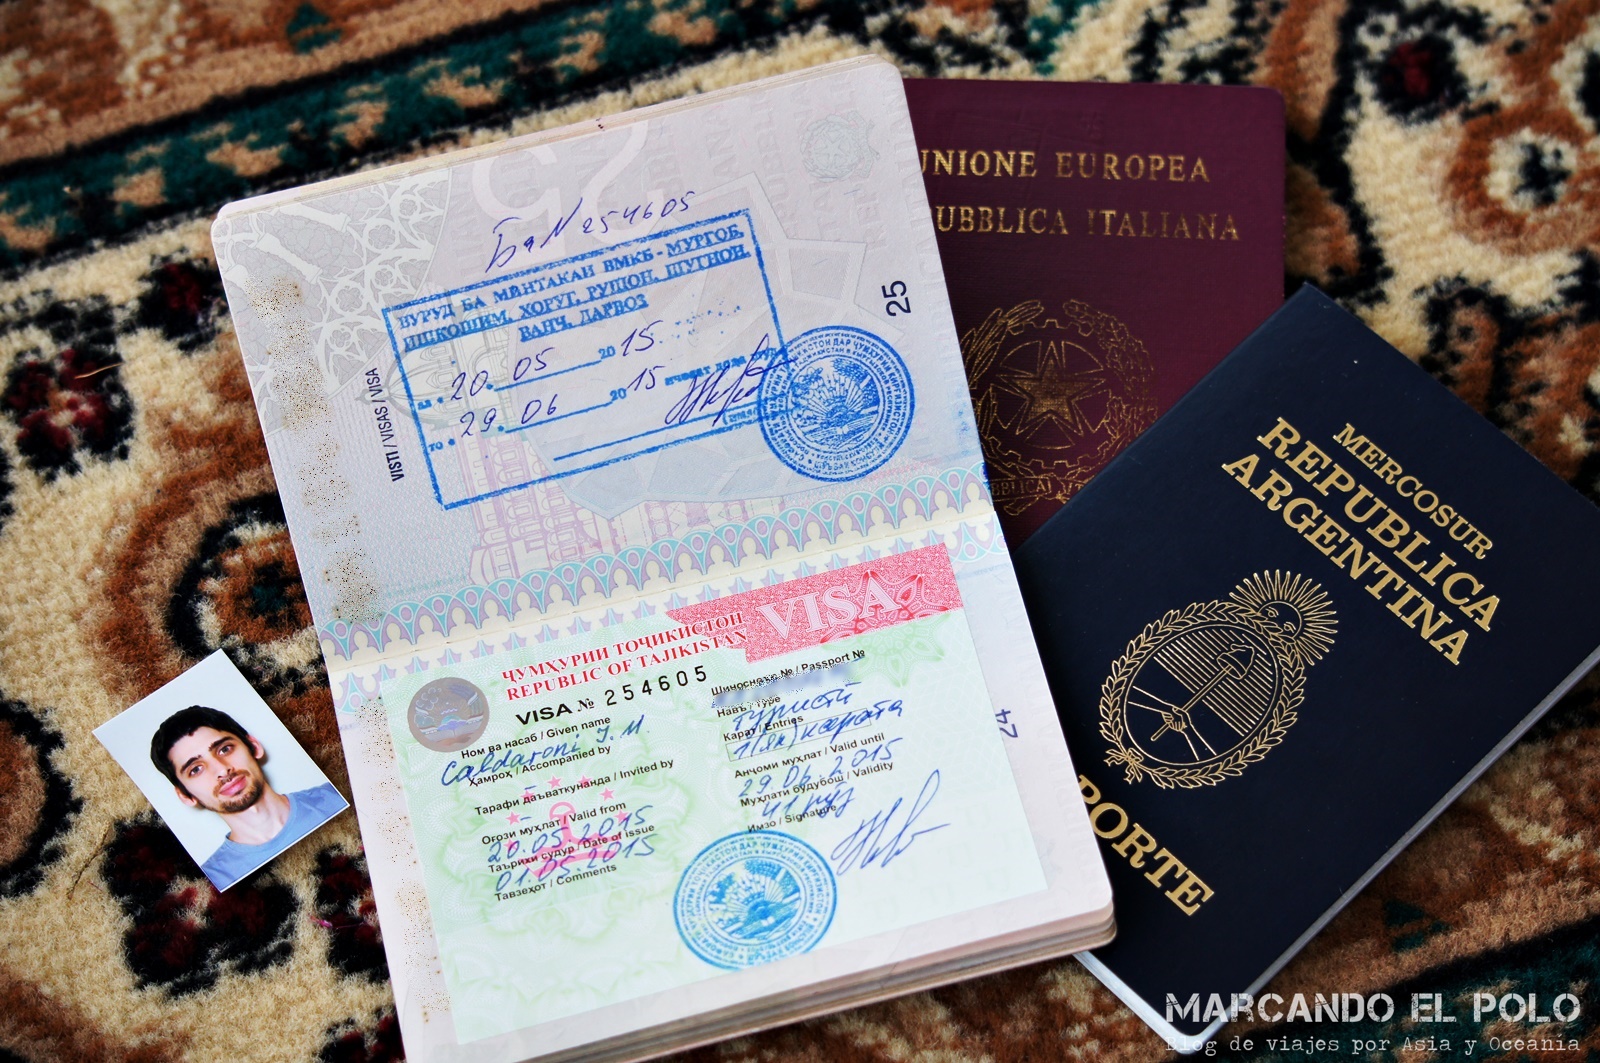 Ба N 254605
ВУРУД БА МИНТАКАИ ВМКБ - МУРГОБ,
ИШКОШИМ, ХОРУГ, РУШОН, ШУГНОН,
ВАНЧ, ДАРВОЗ
аз "20." 05 2015
то "29." 06 2015
VISTI / VISAS / VISA
25
24
VISA
ҶУМҲУРИИ ТОҶИКИСТОН
REPUBLIC OF TAJIKISTAN
VISA № 254605
Ном ва насаб / Given name
Caldaroni J. M.
Ҳамроҳ / Accompanied by
-
Тарафи даъваткунанда / Invited by
-
Оғози муҳлат / Valid from
20.05.2015
Таърихи судур / Date of issue
01.05.2015
Тавзеҳот / Comments
Шиносномаи № / Passport №
Навъ / Type
туристӣ
Карат / Entries
1(як) карата
Анҷоми муҳлат / Valid until
29.06.2015
Муҳлати будубош / Validity
41 рӯз
Имзо / Signature
UNIONE EUROPEA
PUBBLICA ITALIANA
MERCOSUR
REPUBLICA
ARGENTINA
PORTE
MARCANDO EL POLO
Blog de viajes por Asia y Oceanía